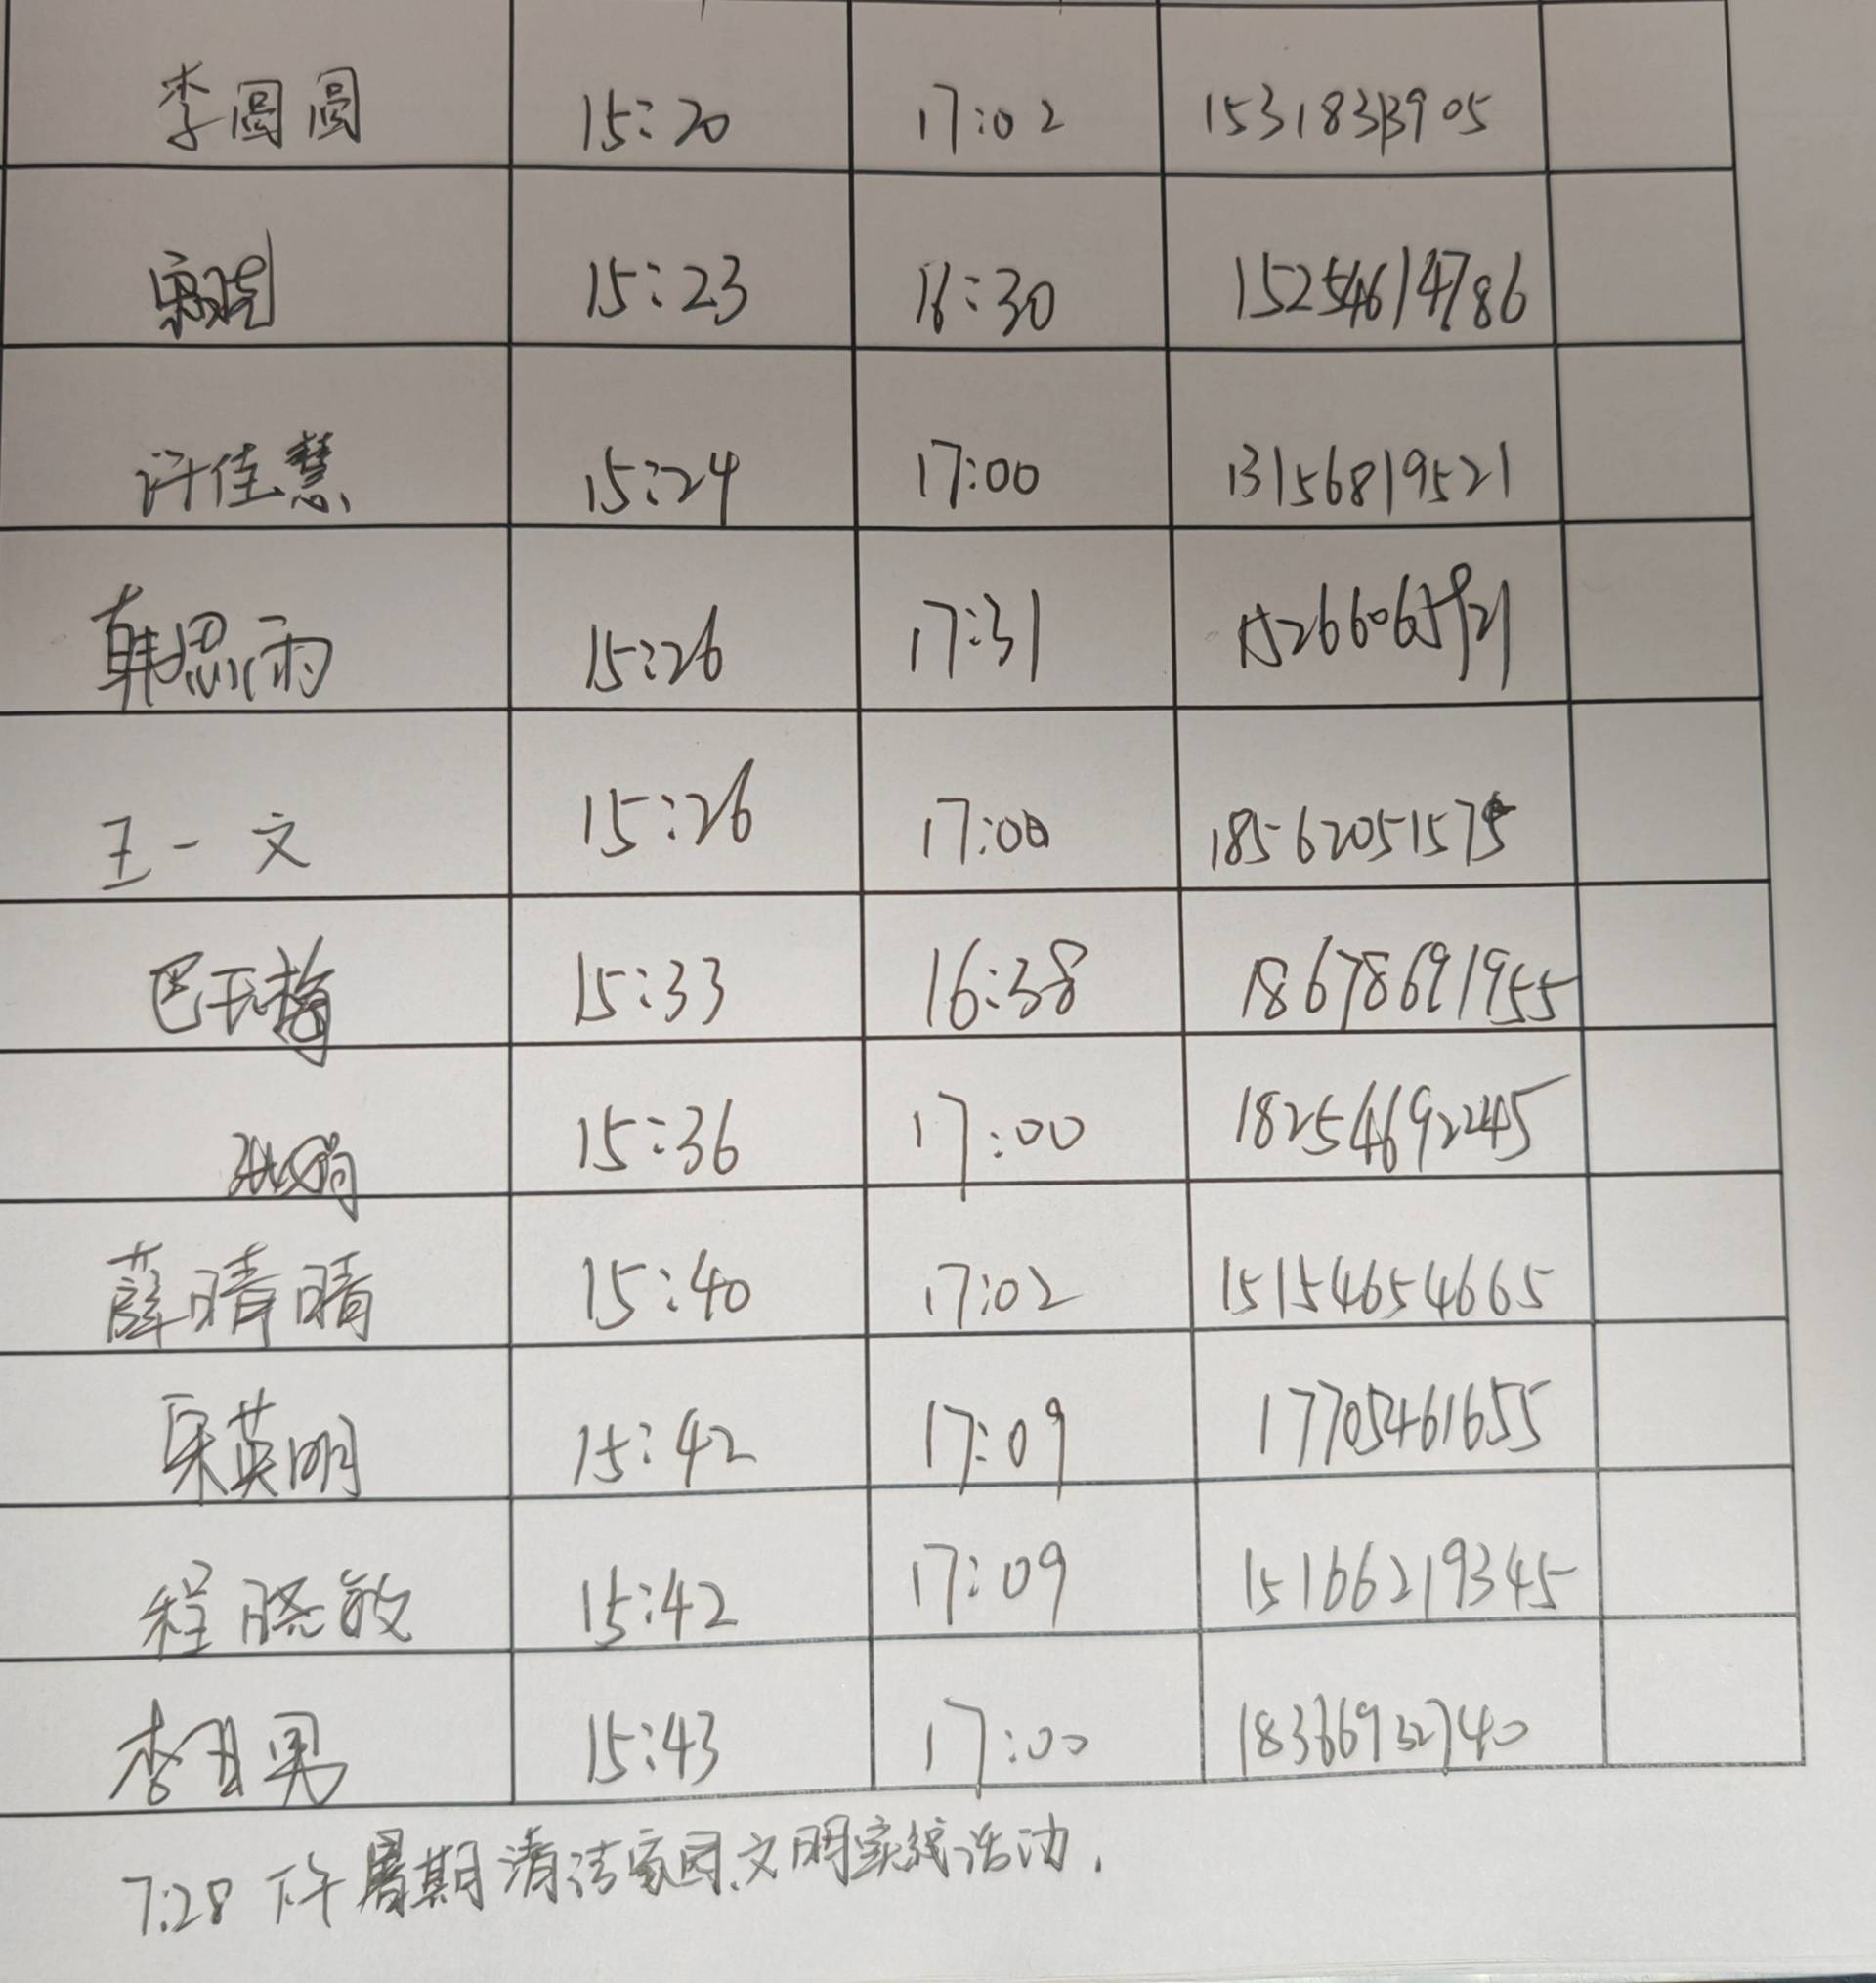 李圆圆 15:20 17:02 15318333905
15:23 16:30 15254614786
许佳慧 15:24 17:00 13156819521
韩思雨 15:26 17:31
王一文 15:26 17:00 18562051575
巴玉梅 15:33 16:38 18678691955
15:36 17:00 18254692245
薛晴晴 15:40 17:02 15154654665
宋英明 15:42 17:09 17705461655
程晓敏 15:42 17:09 15166219345
李丑男 15:43 17:00
7.28 下午暑期清洁家园、文明实践活动.